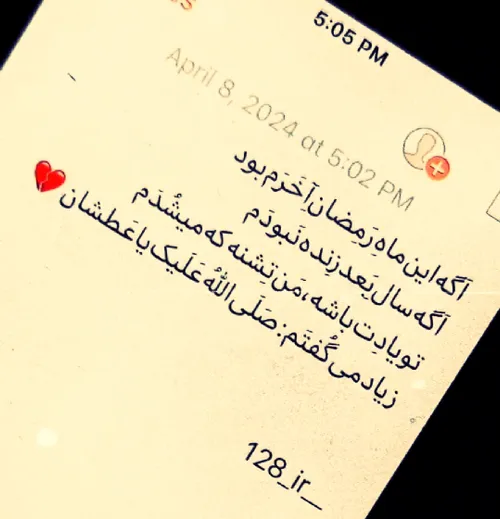 5:05 PM
April 8, 2024 at 5:02 PM
اَگه این ماهِ رَمِضان آخَرَم بود
اَگه سال بَعد زِنده نَبودَم
تو یادِت باشه، مَن تِشنه که میشُدَم
زیاد می گُفتَم: صَلَی اللهُ عَلَیک یا عَطشان 💔
128_ir__